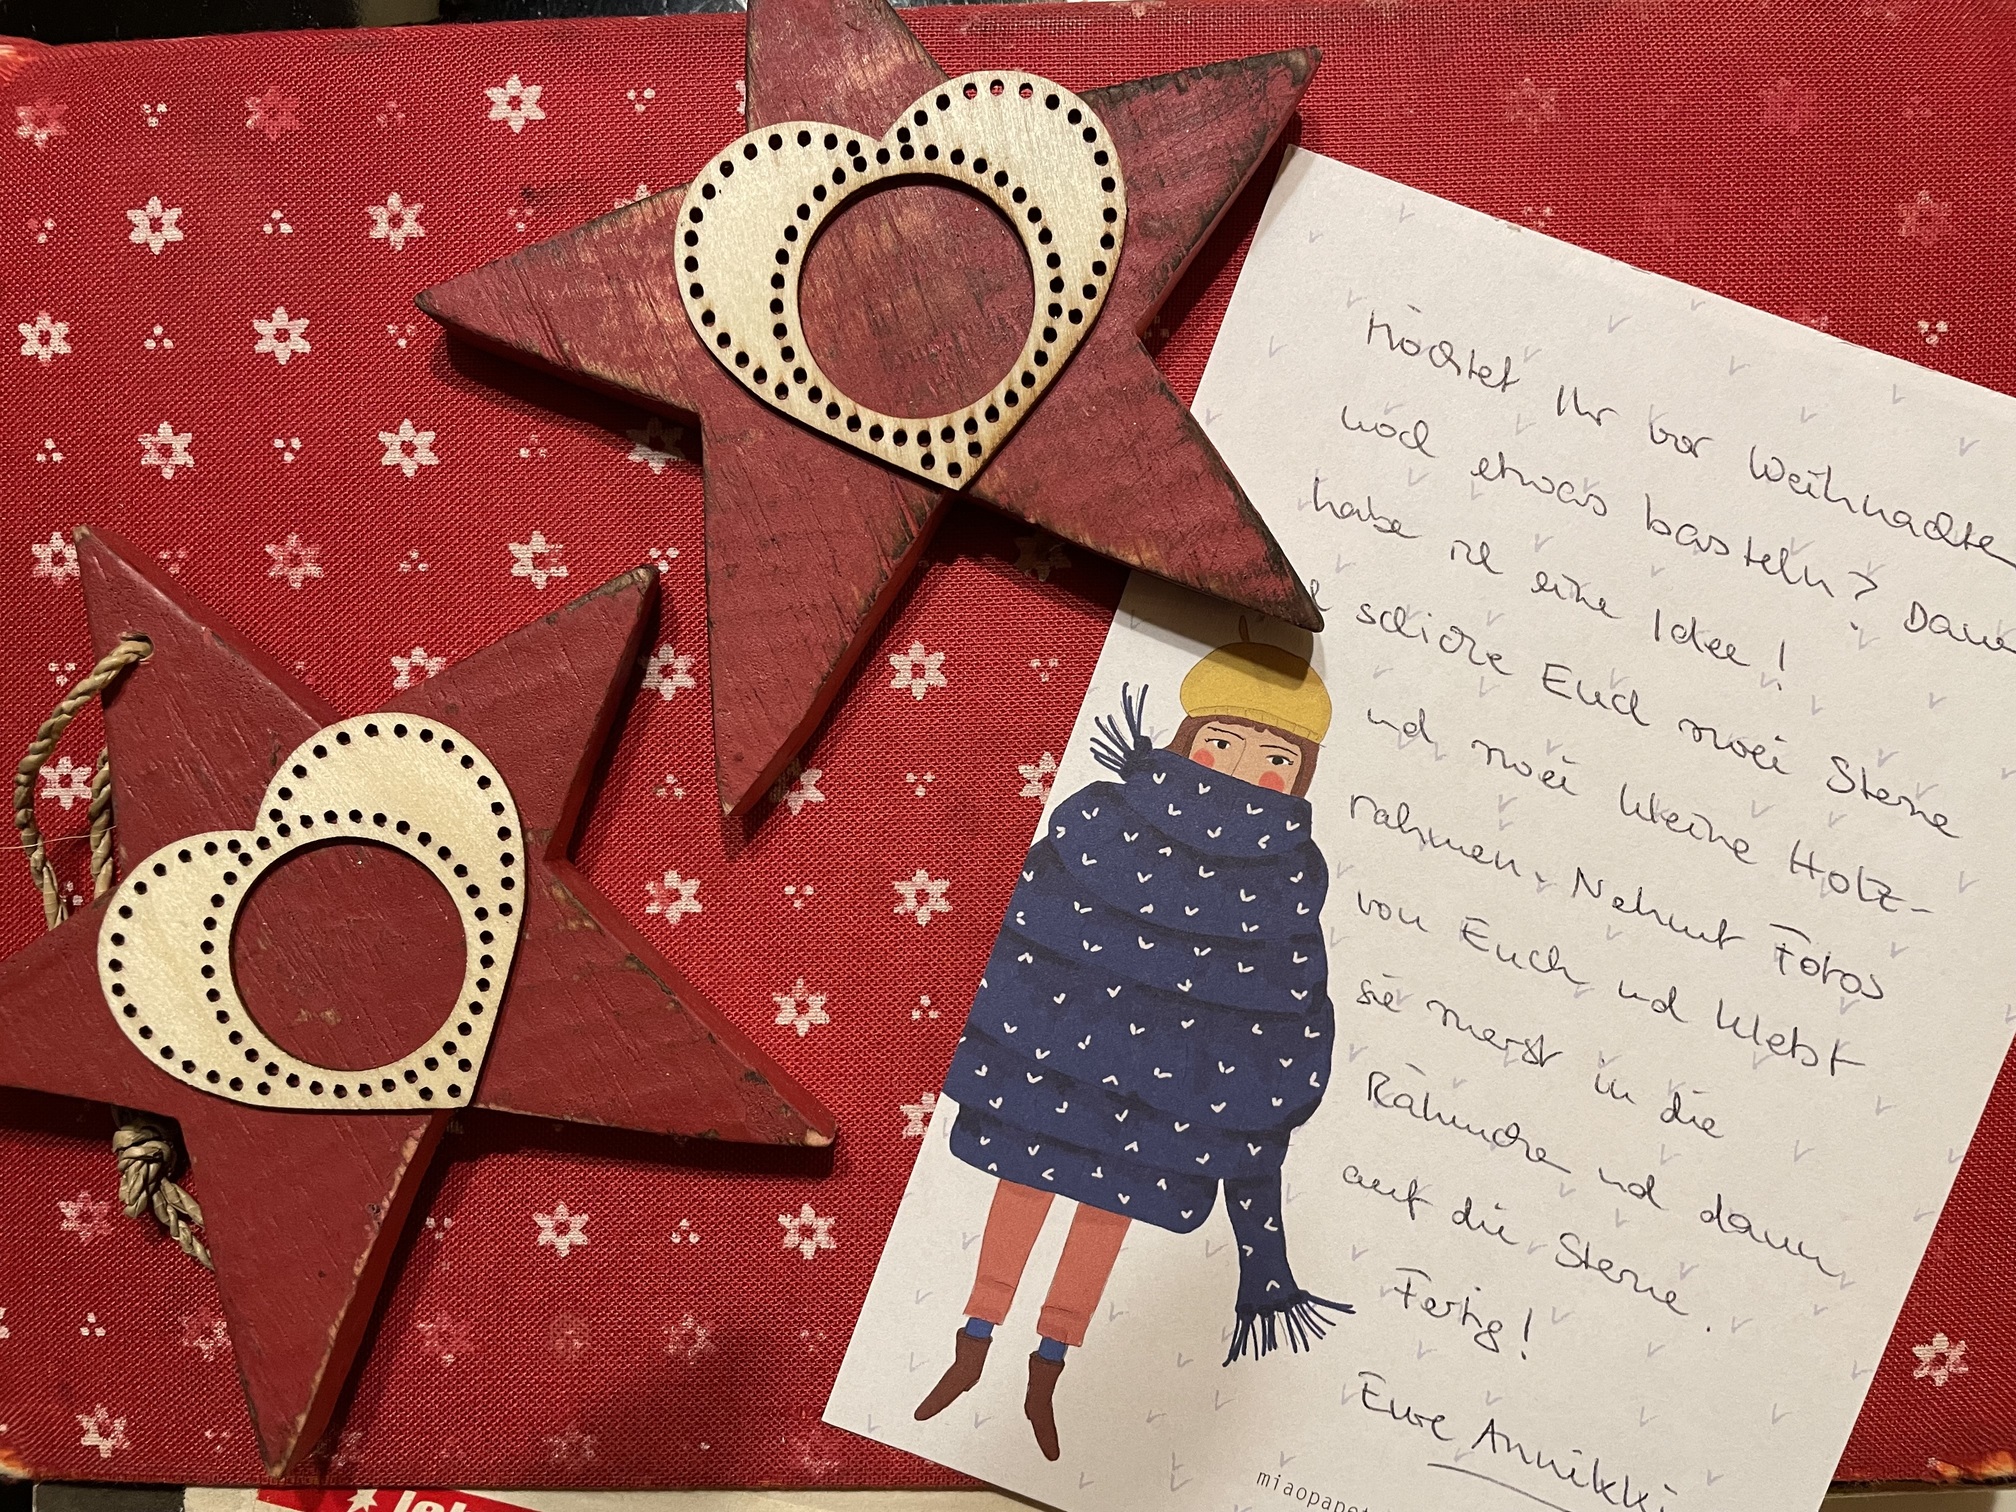 Möchtet Ihr vor Weihnachten
noch etwas basteln? Dann
habe ich eine Idee!
schicke Euch zwei Sterne
und zwei kleine Holz-
rahmen. Nehmt Fotos
von Euch und klebt
sie zuerst in die
Rähmchen und dann
auf die Sterne.
Fertig!
Eure Annikki